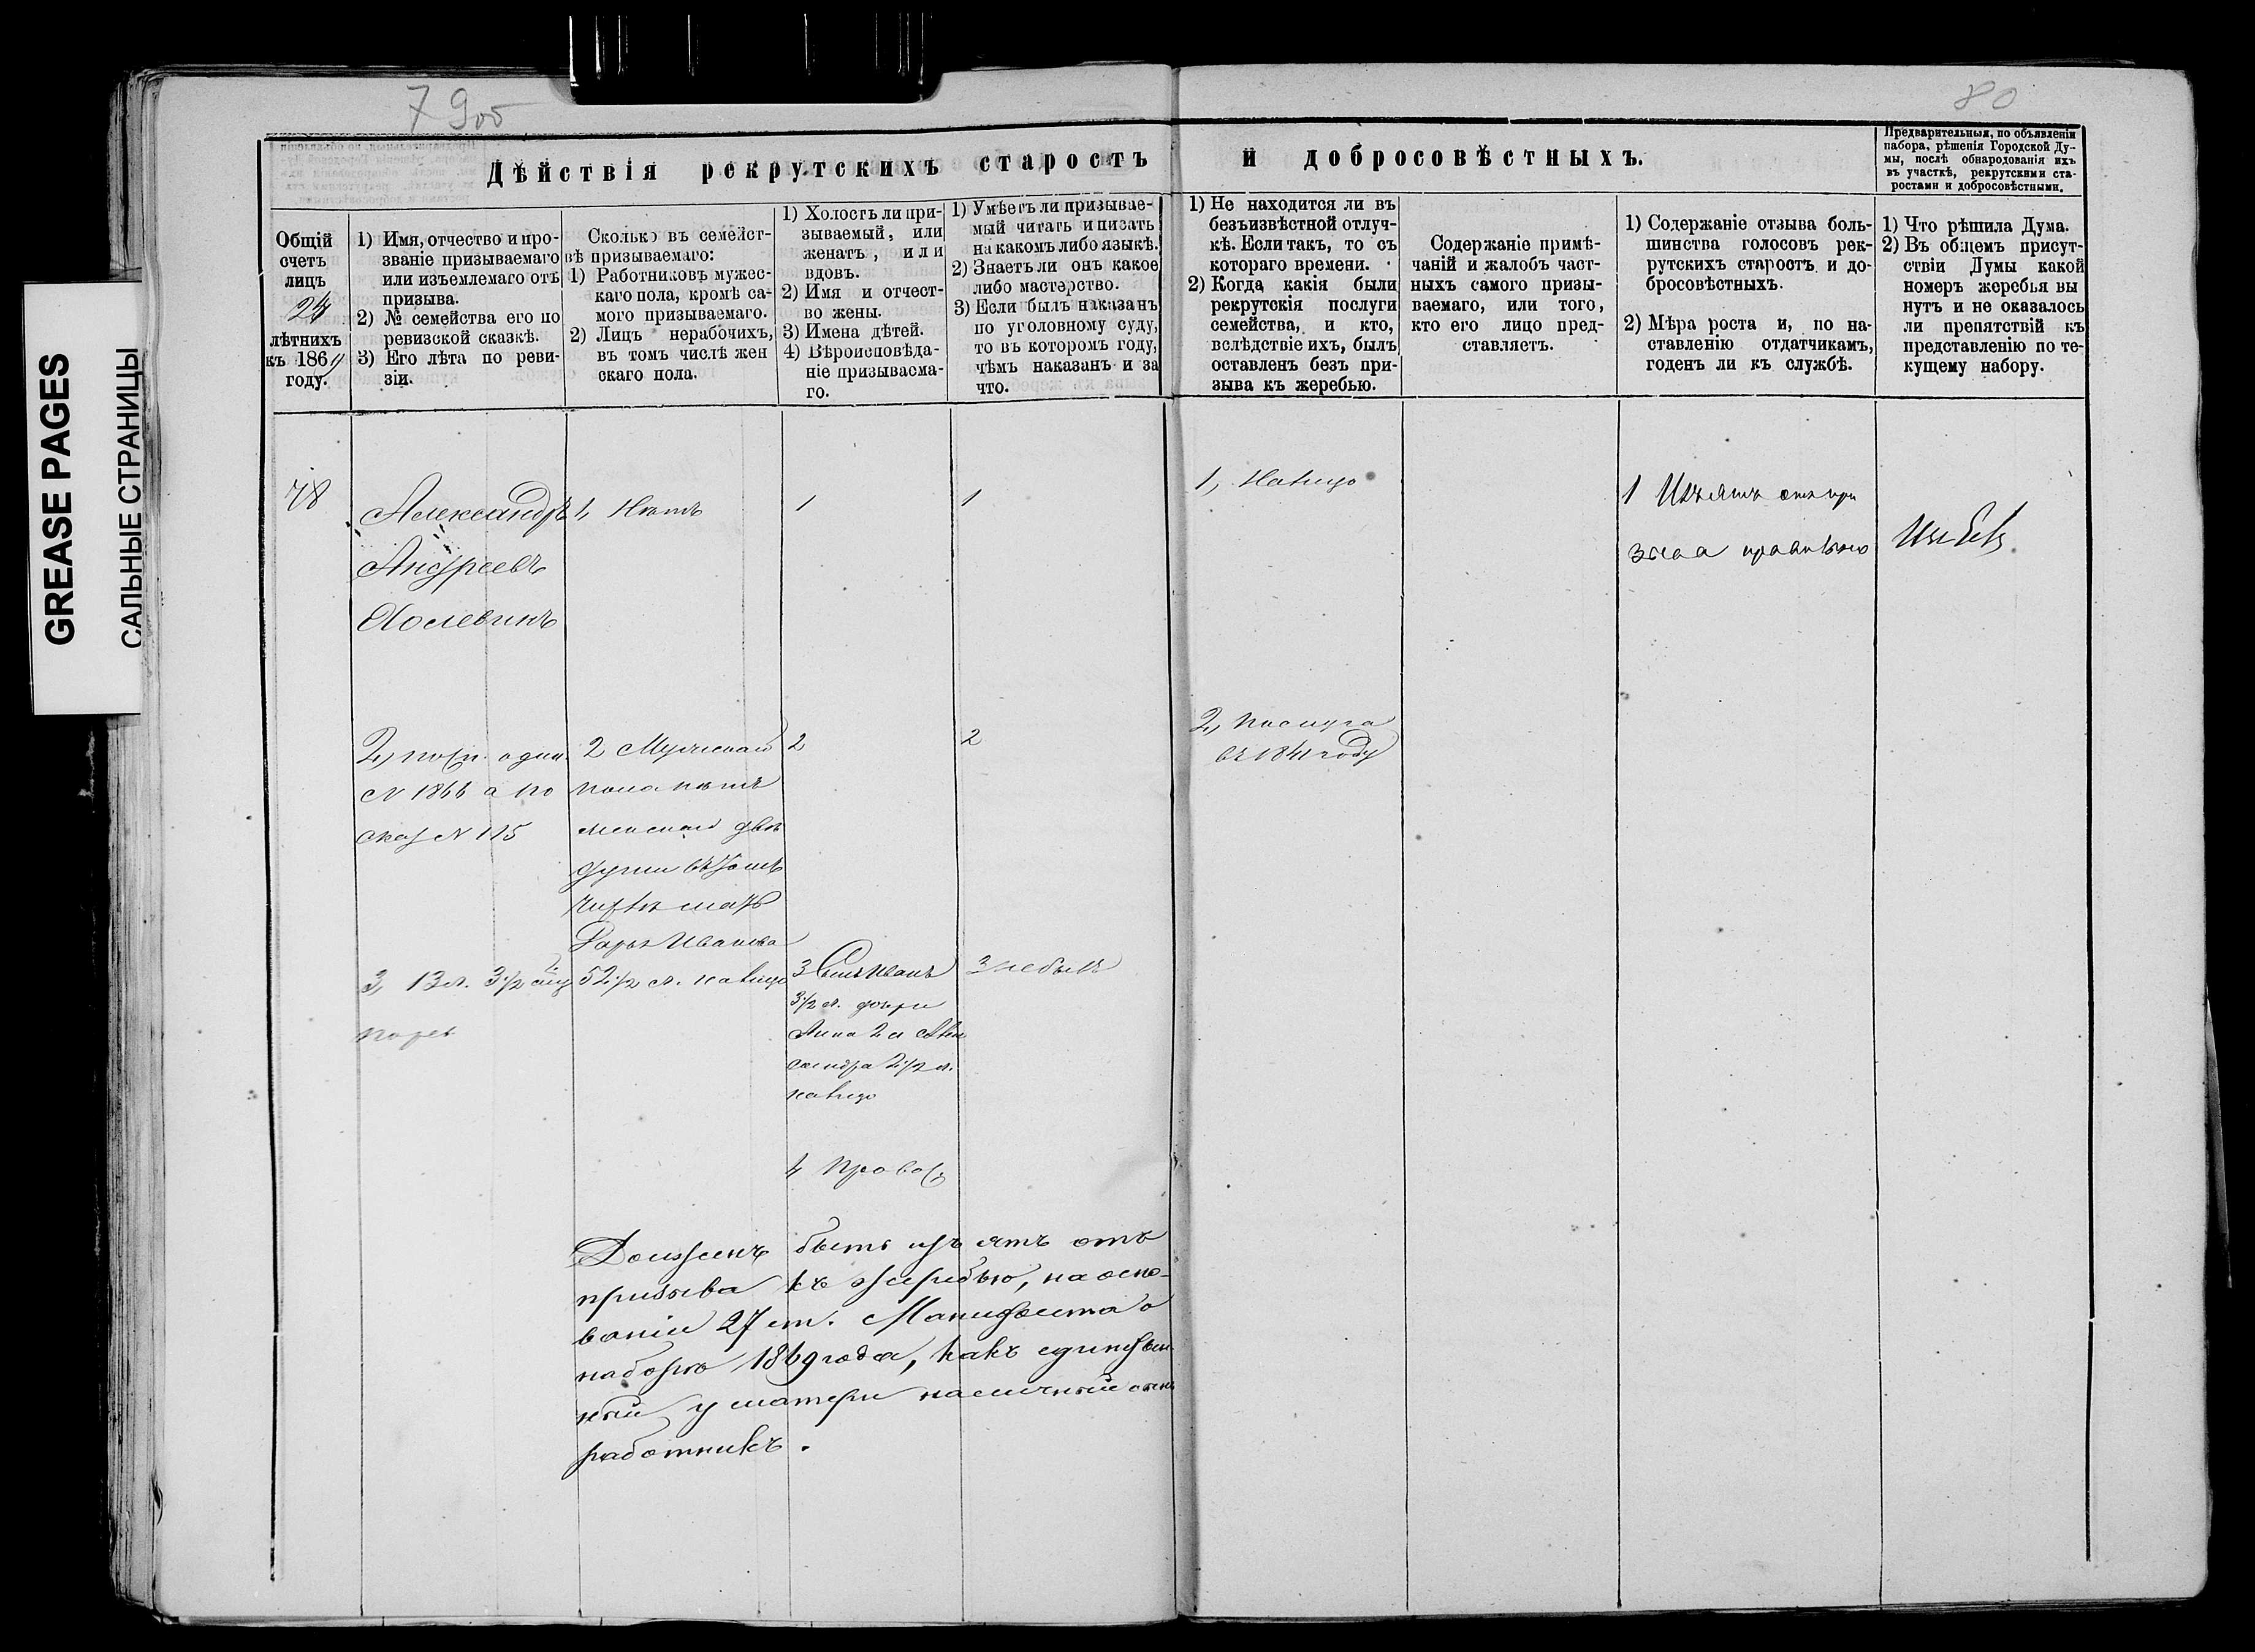 GREASE PAGES
САЛЬНЫЕ СТРАНИЦЫ
79об
80
Дѣйствія рекрутскихъ старостъ и добросовѣстныхъ.
Предварительныя, по объявленіи
набора, рѣшенія Городской Ду-
мы, послѣ обнародованія ихъ
въ участкѣ, рекрутскими ста-
ростами и добросовѣстными.
Общій
счетъ
лицъ
24
лѣтнихъ
къ 1869
году.
1) Имя, отчество и про-
званіе призываемаго
или изъемлемаго отъ
призыва.
2) № семейства его по
ревизской сказкѣ.
3) Его лѣта по реви-
зіи.
Сколько въ семейст-
вѣ призываемаго:
1) Работниковъ мужес-
каго пола, кромѣ са-
мого призываемаго.
2) Лицъ нерабочихъ,
въ томъ числѣ жен
скаго пола.
1) Холостъ ли при-
зываемый, или
женатъ, или
вдовъ.
2) Имя и отчест-
во жены.
3) Имена дѣтей.
4) Вѣроисповѣда-
ніе призываема-
го.
1) Умѣетъ ли призывае-
мый читать и писать
на какомъ либо языкѣ.
2) Знаетъ ли онъ какое
либо мастерство.
3) Если былъ наказанъ
по уголовному суду,
то въ которомъ году,
чѣмъ наказанъ и за
что.
1) Не находится ли въ
безъизвѣстной отлуч-
кѣ. Если такъ, то съ
котораго времени.
2) Когда какія были
рекрутскія послуги
семейства, и кто,
вслѣдствіе ихъ, былъ
оставленъ безъ при-
зыва къ жеребью.
Содержаніе примѣ-
чаній и жалобъ част-
ныхъ самого призы-
ваемаго, или того,
кто его лицо пред-
ставляетъ.
1) Содержаніе отзыва боль-
шинства голосовъ рек-
рутскихъ старостъ и до-
бросовѣстныхъ.
2) Мѣра роста и, по на-
ставленію отдатчикамъ,
годенъ ли къ службѣ.
1) Что рѣшила Дума.
2) Въ общемъ присут-
ствіи Думы какой
номеръ жеребья вы
нутъ и не оказалось
ли препятствій къ
представленію по те-
кущему набору.
78
Александръ
Андреевъ
2, по
N 1866 а по
сказ N 115
3, 13 л. 3 1/2
по рев
1, Нѣтъ
2 Мужскаго
пола нѣтъ
женскаго двѣ
души въ томъ
числѣ мать
Дарья Иванова
52 1/2 л. налицо
1
2
3 Сынъ Иванъ
3 1/2 л. дочери
Анна 2 и Алек
сандра 2 1/2 л.
налицо
4 Правос
1
2
3 небылъ
1, Налицо
2, послуга
въ 1841 году
1 Изъятъ отъ при
зыва правильно
Должен быть изъятъ отъ
призыва къ жеребью, на осно-
ваніи 27 ст. Манифеста о
наборѣ 1869 года, какъ единствен
ный у матери наличный сынъ
работникъ.